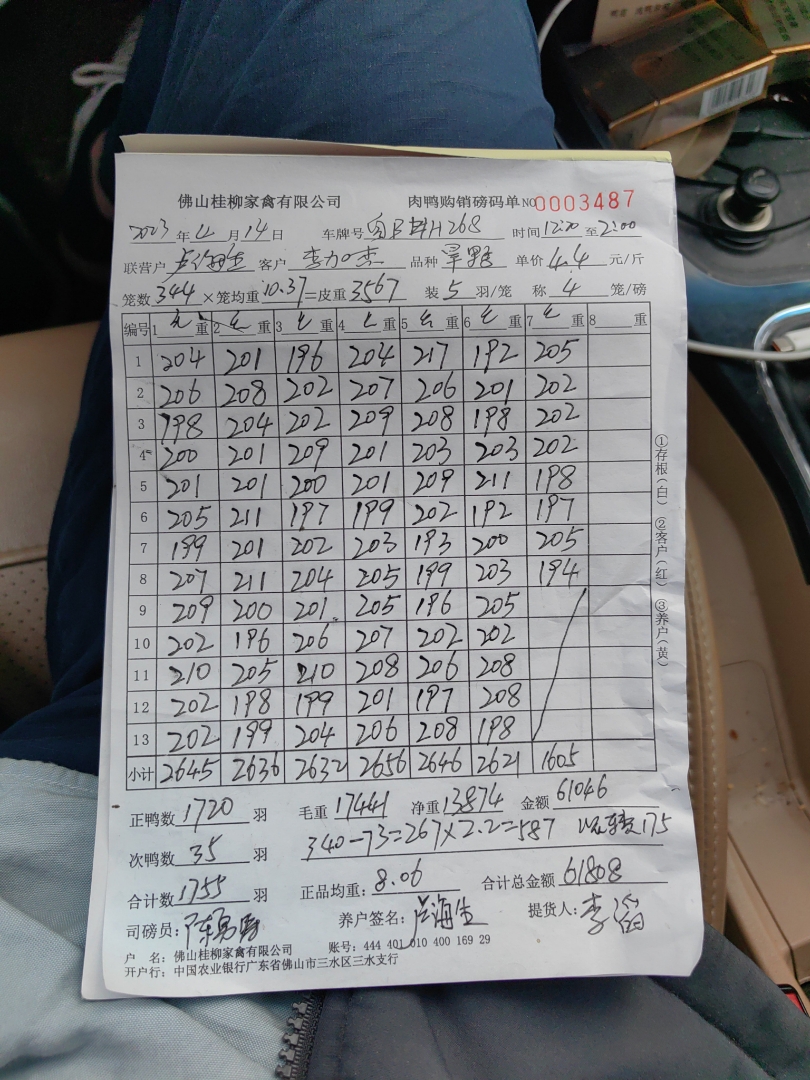 佛山桂柳家禽有限公司 肉鸭购销磅码单 NO 0003487
2023年4月14日 车牌号 H268 时间 12:20 至 2:00
联营户 客户 李加 品种 单价 4.4 元/斤
笼数 344 ×笼均重 10.37 =皮重 3567 装 5 羽/笼 称 4 笼/磅
编号 1 毛重 2 毛重 3 毛重 4 毛重 5 毛重 6 毛重 7 毛重 8 重
1 204 201 196 204 217 192 205
2 206 208 202 207 206 201 202
3 198 204 202 209 208 198 202
4 200 201 209 201 203 203 202
5 201 201 200 201 209 211 198
6 205 211 197 199 202 192 197
7 199 201 202 203 193 200 205
8 207 211 204 205 199 203 194
9 209 200 201 205 196 205
10 202 196 206 207 202 202
11 210 205 210 208 206 208
12 202 198 199 201 197 208
13 202 199 204 206 208 198
小计 2645 2636 2632 2656 2646 2621 1605
正鸭数 1720 羽 毛重 17441 净重 13874 金额 61046
340-73=267×2.2=587 175
次鸭数 35 羽
合计数 1755 羽 正品均重: 8.06 合计总金额 61808
司磅员: 陈 养户签名: 海生 提货人: 李
户 名: 佛山桂柳家禽有限公司 账号: 444 401 010 400 169 29
开户行: 中国农业银行广东省佛山市三水区三水支行
①存根(白) ②客户(红) ③养户(黄)